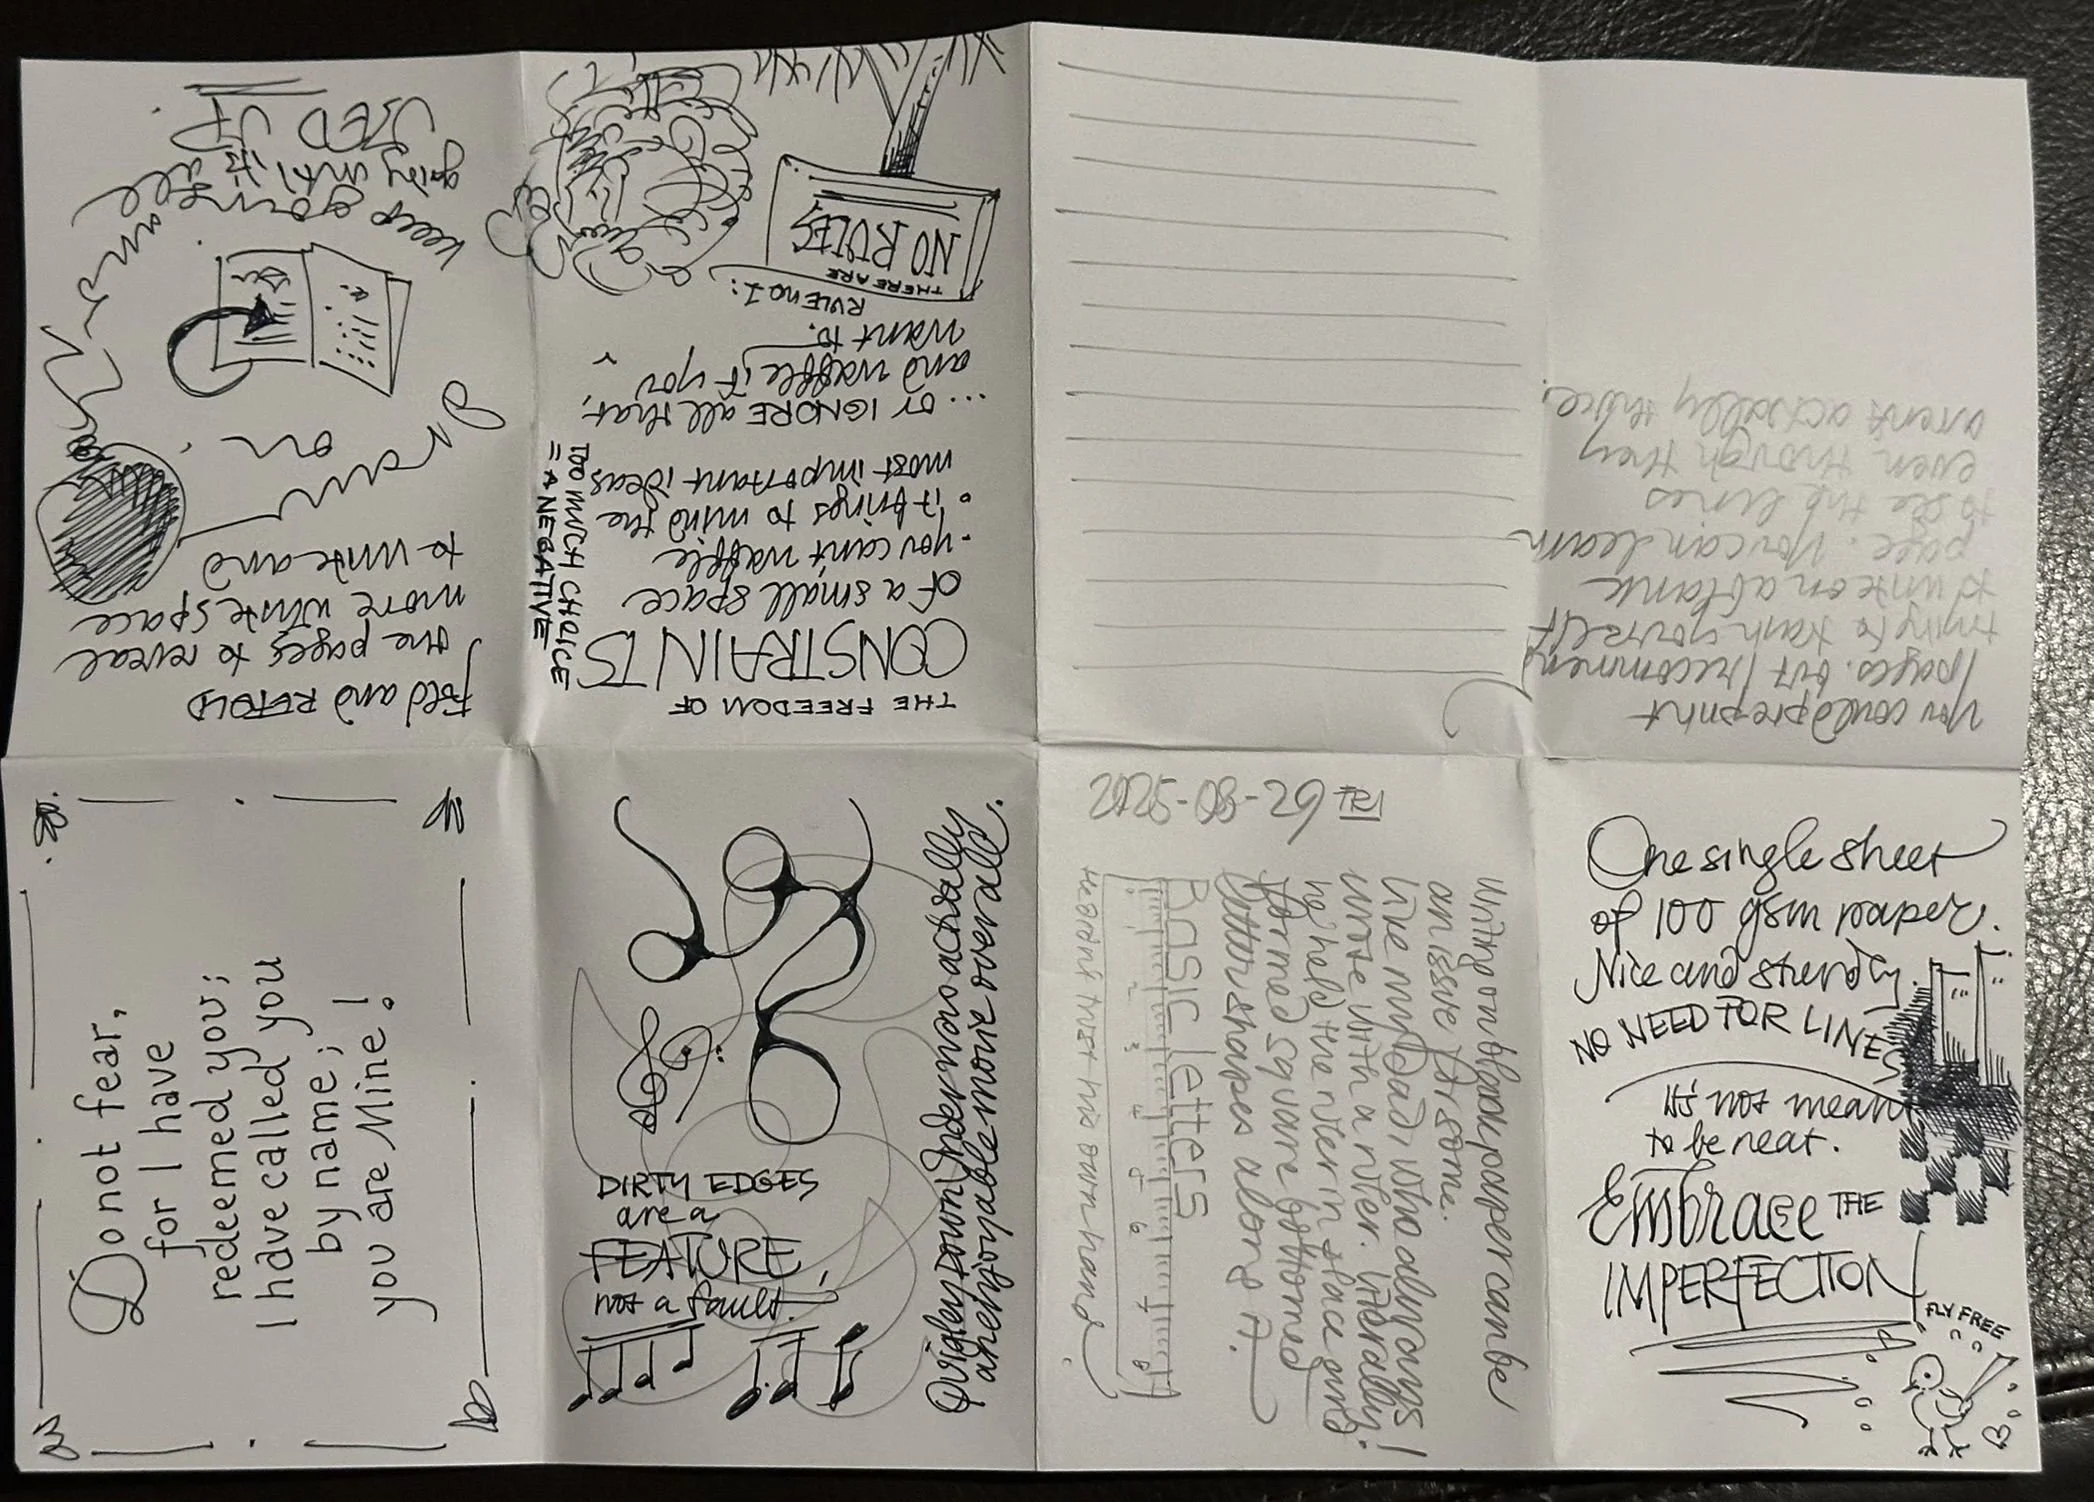 fold and REFOLD
the pages to reveal
more white space
to write and
draw
on
keep going
going until it's all
USED UP
THE FREEDOM OF
CONSTRAINTS
of a small space
- you can't waffle
• it brings to mind the
most important ideas
TOO MUCH CHOICE
= A NEGATIVE
... or IGNORE all that,
and waffle if you
want to.
RULE no 1:
THERE ARE
NO RULES
You could preprint
pages. but I recommend
trying to teach yourself
to write on a blank
page. You can learn
to see the lines
even through they
aren't actually there.
Do not fear,
for I have
redeemed you;
I have called you
by name;
you are Mine!
DIRTY EDGES
are a
FEATURE,
not a fault.
Quigley Down Under was actually
an enjoyable movie overall.
2025-08-29 FRI
Writing on blank paper can be
an issue for some.
Like my Dad, who always
wrote with a ruler. Literally!
he held the ruler in place and
formed square bottomed
letter shapes along it.
Basic letters
1 2 3 4 5 6 7 8
He didn't trust his own hand
One single sheet
of 100 gsm paper.
Nice and sturdy.
NO NEED FOR LINES
It's not meant
to be neat.
Embrace THE
IMPERFECTION
FLY FREE